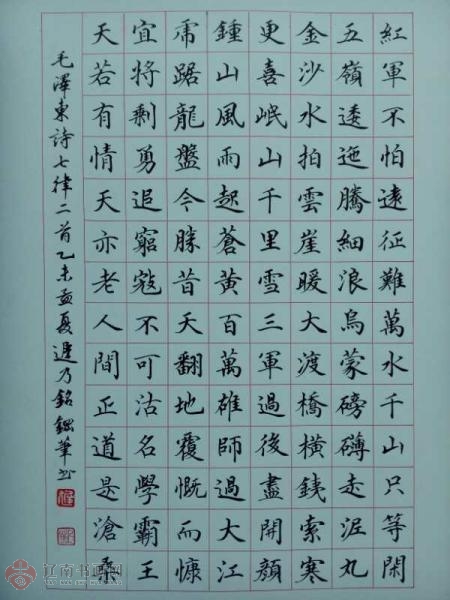 紅軍不怕遠征難萬水千山只等閑
五嶺逶迤騰細浪烏蒙磅礴走泥丸
金沙水拍雲崖暖大渡橋橫銕索寒
更喜岷山千里雪三軍過後盡開顏
鍾山風雨起蒼黃百萬雄師過大江
虎踞龍盤今勝昔天翻地覆慨而慷
宜將剩勇追窮寇不可沽名學霸王
天若有情天亦老人間正道是滄桑
毛澤東詩七律二首乙未孟夏遲乃銘鋼筆书